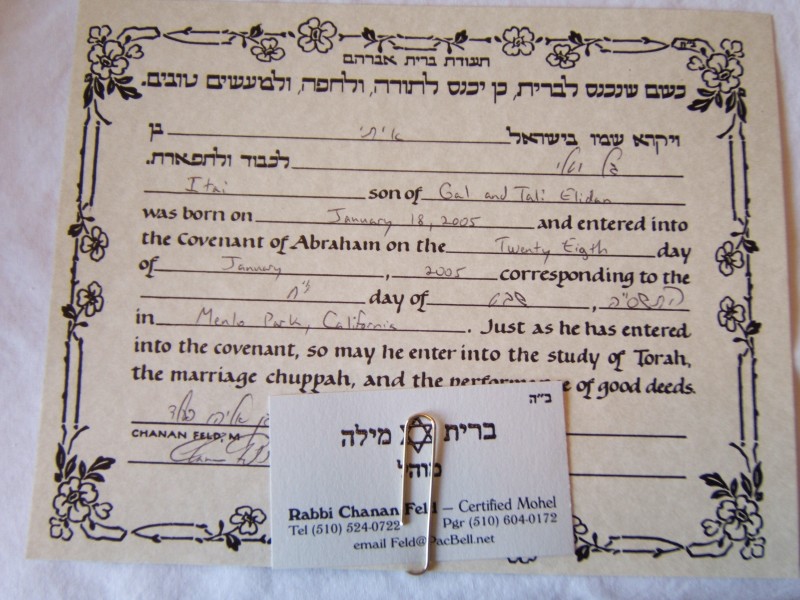 תעודת ברית אברהם
כשם שנכנס לברית, כן יכנס לתורה, ולחפה, ולמעשים טובים.
ויקרא שמו בישראל איתי בן
גל וטלי לכבוד ולתפארת.
Itai son of Gal and Tali Elidan
was born on January 18, 2005 and entered into
the Covenant of Abraham on the Twenty Eigth day
of January , 2005 corresponding to the
י״ח day of שבט , ה׳תשס״ה
in Menlo Park, California . Just as he has entered
into the covenant, so may he enter into the study of Torah,
the marriage chuppah, and the of good deeds.
CHANAN FELD, M
ב״ה
ברית מילה
מוהל
Rabbi Chanan Feld – Certified Mohel
Tel (510) 524-0722 Pgr (510) 604-0172
email Feld@PacBell.net